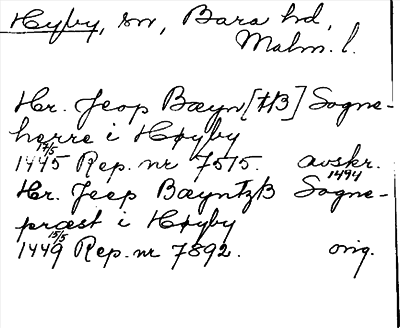 Hyby, sn, Bara hd,
Malm. l.
Hr. Jeop Bæyn[tzB] Sogne-
herre i Høyby
17/5
1445 Rep. nr 7515. avskr.
1494
Hr. Jeep BæyntzB Sogne-
præst i Høyby
15/5
1449 Rep. nr 7892. orig.